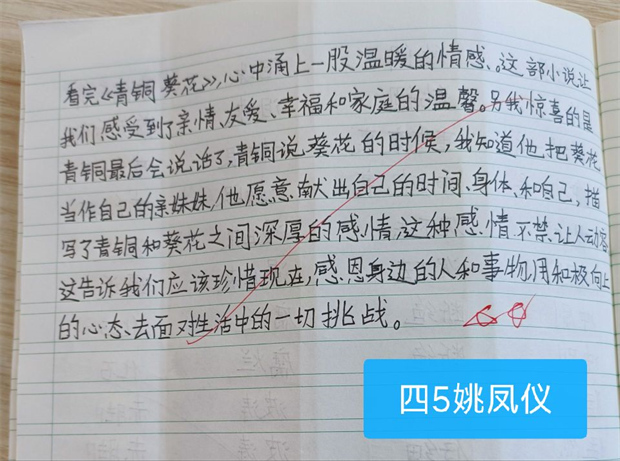 看完《青铜葵花》，心中涌上一股温暖的情感、。这部小说让
我们感受到了亲情、友爱、幸福和家庭的温馨。另我惊喜的是
青铜最后会说话了，青铜说葵花的时候，我知道他把葵花
当作自己的亲妹妹，他愿意献出自己的时间、身体、和自己，描
写了青铜和葵花之间深厚的感情，这种感情不禁让人动容
这告诉我们应该珍惜现在，感恩身边的人和事物，用和极向上
的心态、去面对生活中的一切挑战。
四5姚凤仪